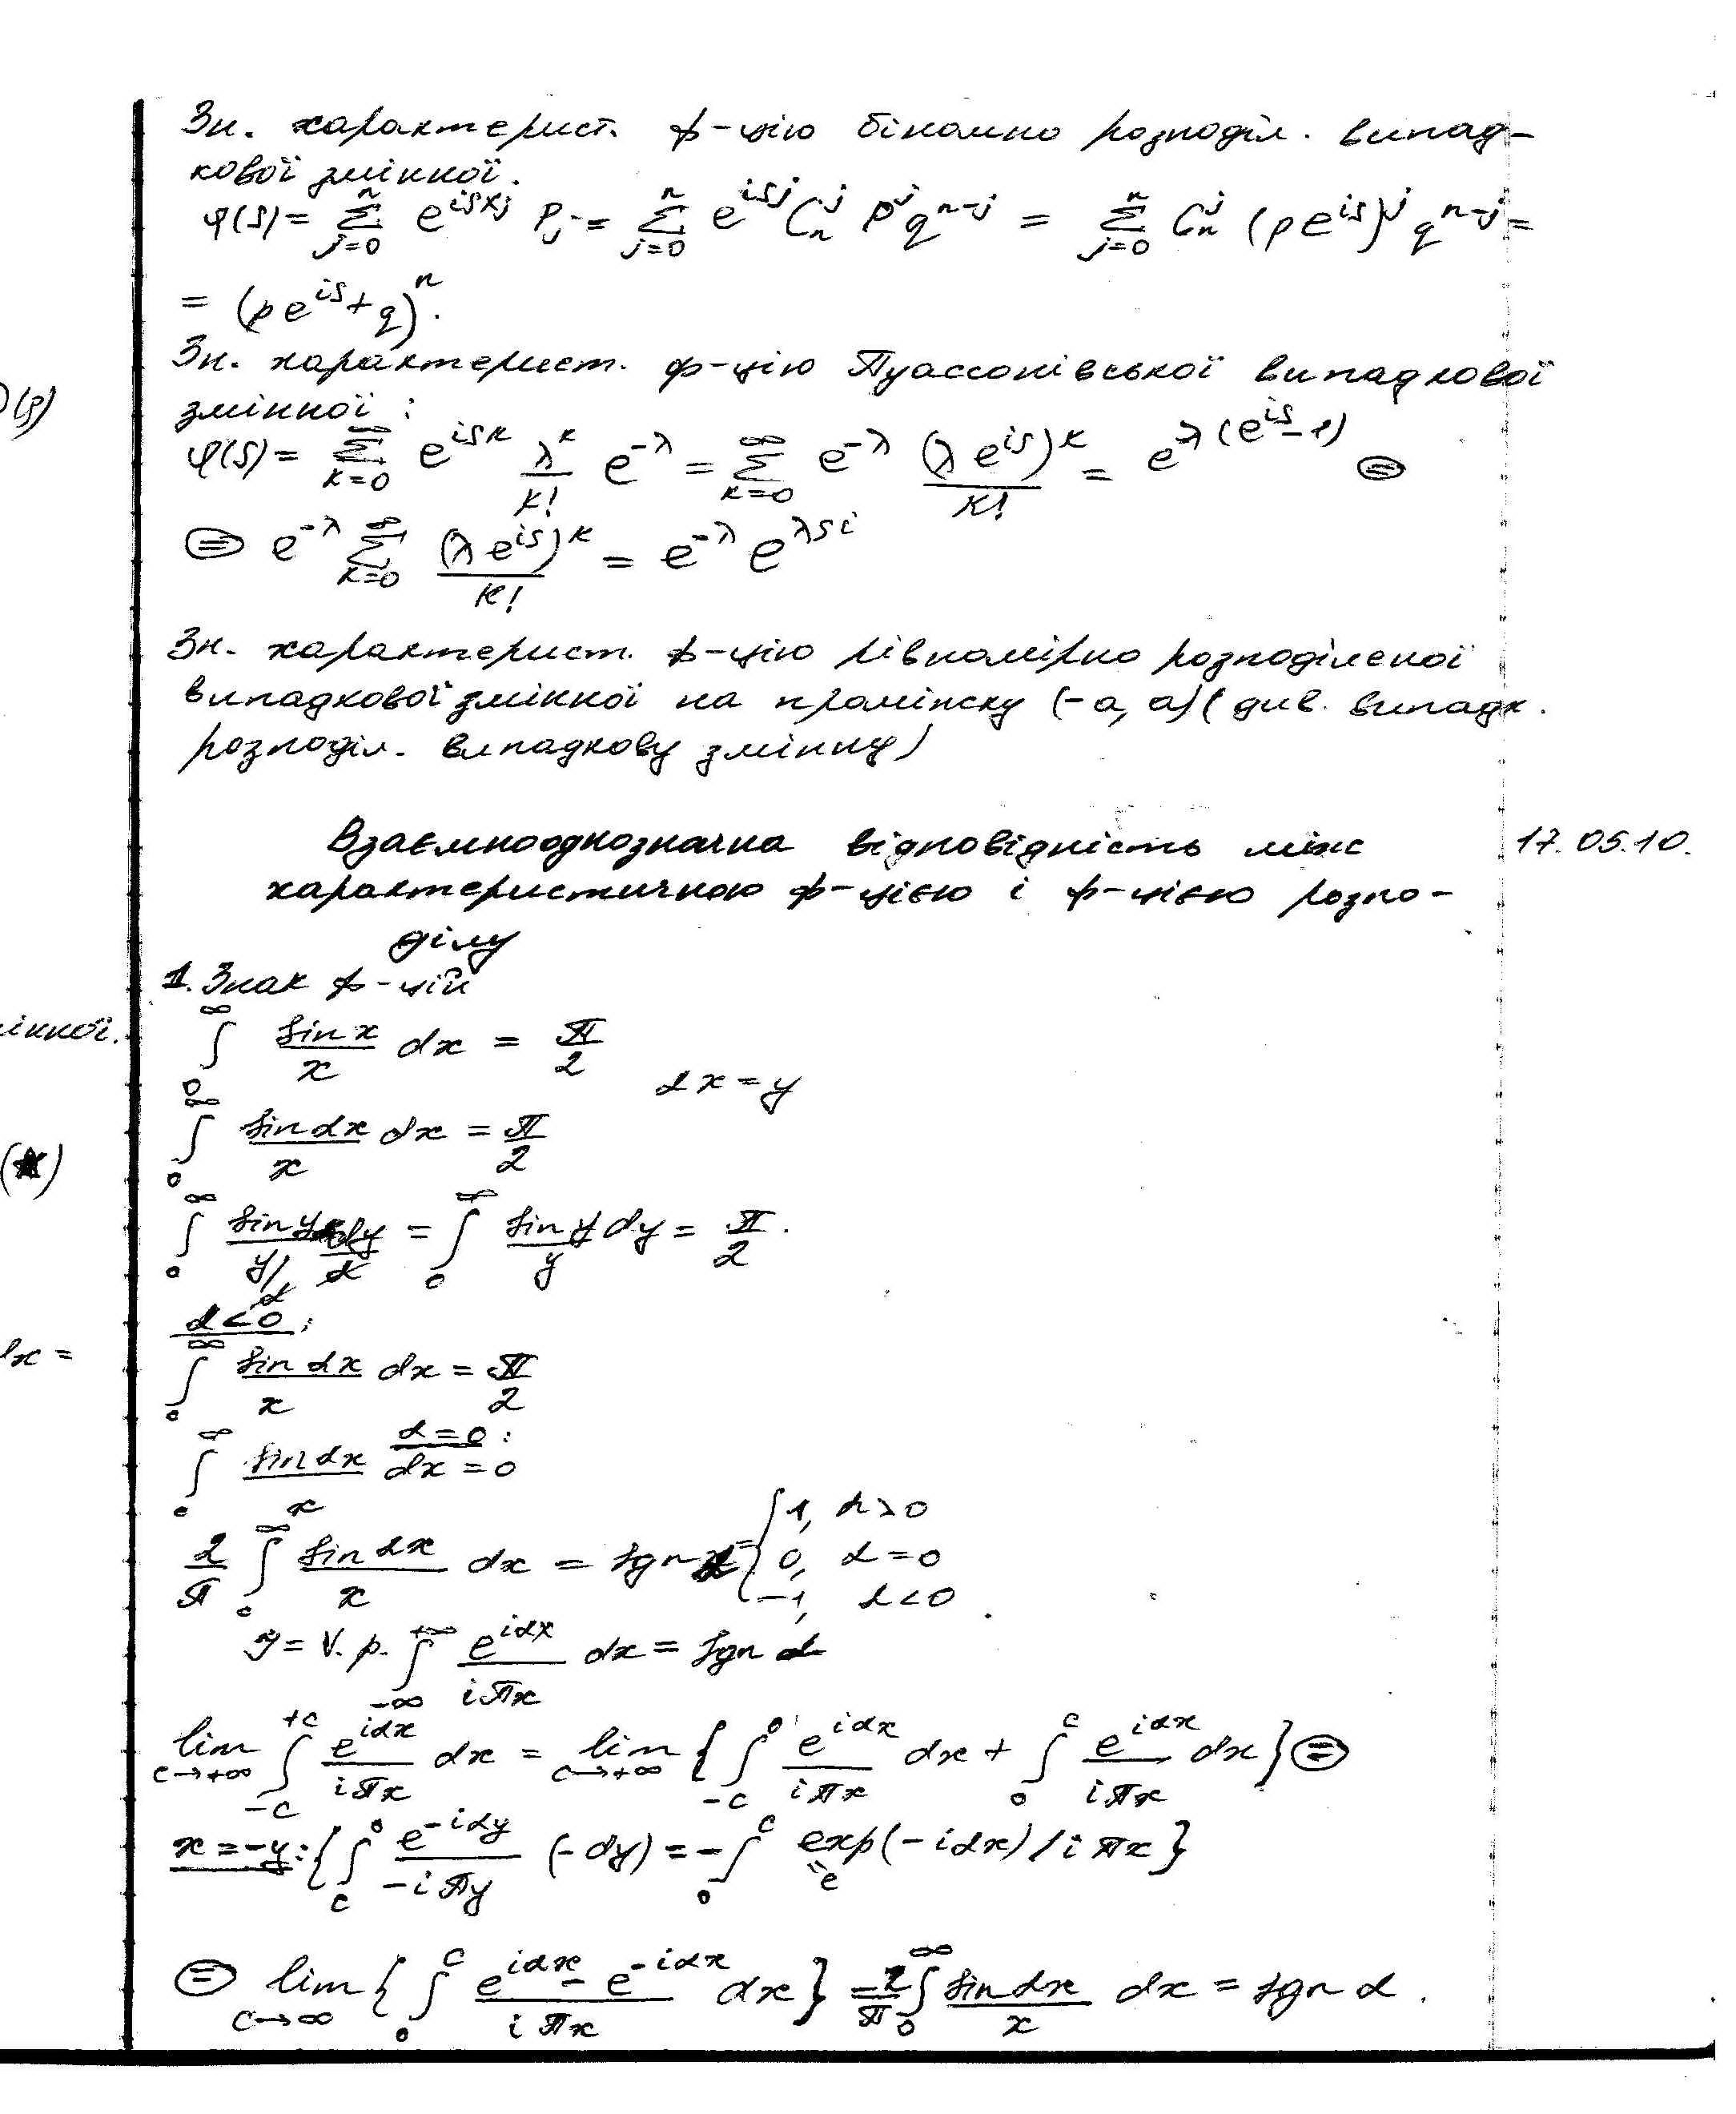 Зн. характерист. ф-цію біномно розподіл. випад-
кової змінної.
φ(s) = Σ_{j=0}^{n} e^{isxj} P_j = Σ_{j=0}^{n} e^{isj} C_n^j p^j q^{n-j} = Σ_{j=0}^{n} C_n^j (pe^{is})^j q^{n-j} =
= (pe^{is} + q)^n.
Зн. характерист. ф-цію Пуассонівської випадкової
змінної:
φ(s) = Σ_{k=0}^{∞} e^{isk} λ^k/k! e^{-λ} = Σ_{k=0}^{∞} e^{-λ} (λe^{is})^k/k! = e^{λ(e^{is}-1)} ⊜
⊜ e^{-λ} Σ_{k=0}^{∞} (λe^{is})^k/k! = e^{-λ} e^{λsi}
Зн. характерист. ф-цію рівномірно розподіленої
випадкової змінної на проміжку (-a, a) (див. випадк.
розподіл. випадкову змінну)
Взаємнооднозначна відповідність між 17.05.10.
характеристичною ф-цією і ф-цією розпо-
ділу
1. Знак ф-цій
∫_0^∞ sin x/x dx = π/2
αx = y
∫_0^∞ sin αx/x dx = π/2
∫_0^∞ sin y/(y/α) dy/α = ∫_0^∞ sin y/y dy = π/2.
α<0:
∫_0^∞ sin αx/x dx = π/2
α=0:
∫_0^∞ sin αx/x dx = 0
2/π ∫_0^∞ sin αx/x dx = sgn α = { 1, α>0
0, α=0
-1, α<0.
J = V.p. ∫_{-∞}^{+∞} e^{iαx}/iπx dx = sgn α
lim_{c→+∞} ∫_{-c}^{+c} e^{iαx}/iπx dx = lim_{c→+∞} { ∫_{-c}^0 e^{iαx}/iπx dx + ∫_0^c e^{iαx}/iπx dx } ⊜
x=-y: { ∫_c^0 e^{-iαy}/-iπy (-dy) = -∫_0^c exp(-iαx)/iπx }
"e
⊜ lim_{c→∞} { ∫_0^c e^{iαx} - e^{-iαx}/iπx dx } = 2/π ∫_0^∞ sin αx/x dx = sgn α.
(★)
dx =